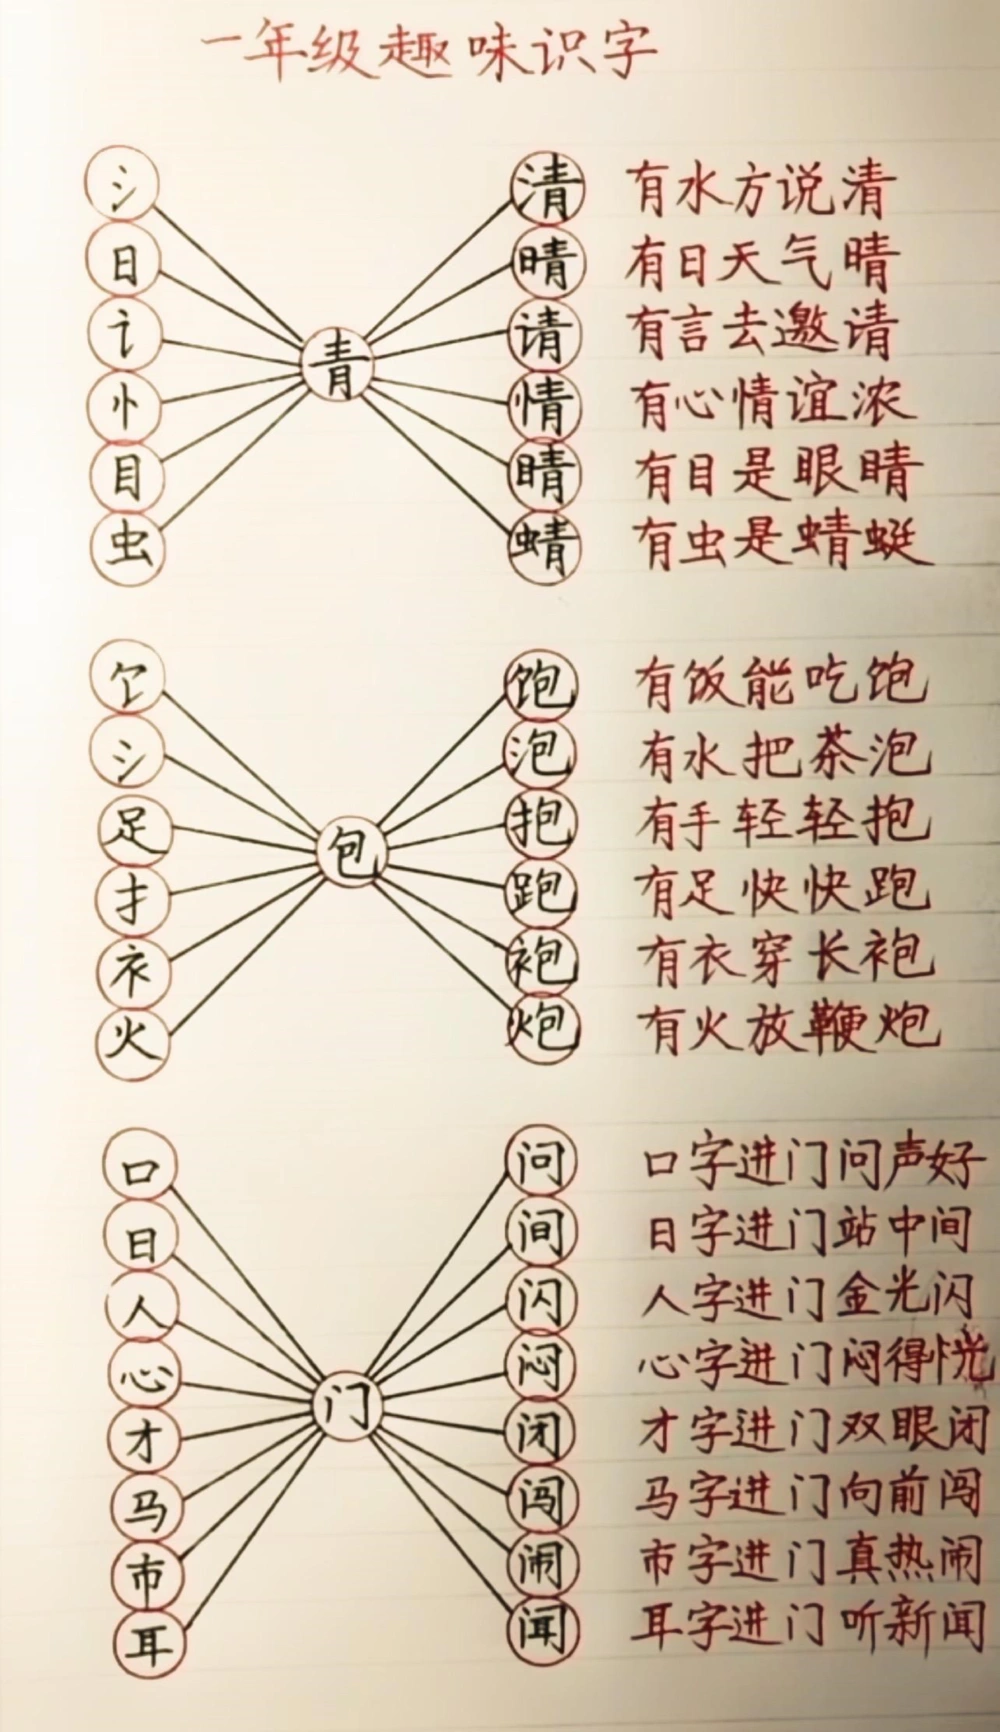 一年级趣味识字
氵 清 有水方说清
日 晴 有日天气晴
讠 请 有言去邀请
青
忄 情 有心情谊浓
目 睛 有目是眼睛
虫 蜻 有虫是蜻蜓
饣 饱 有饭能吃饱
氵 泡 有水把茶泡
足 抱 有手轻轻抱
包
扌 跑 有足快快跑
衤 袍 有衣穿长袍
火 炮 有火放鞭炮
口 问 口字进门问声好
日 间 日字进门站中间
人 闪 人字进门金光闪
心 闷 心字进门闷得
门
才 闭 才字进门双眼闭
马 闯 马字进门向前闯
市 闹 市字进门真热闹
耳 闻 耳字进门听新闻